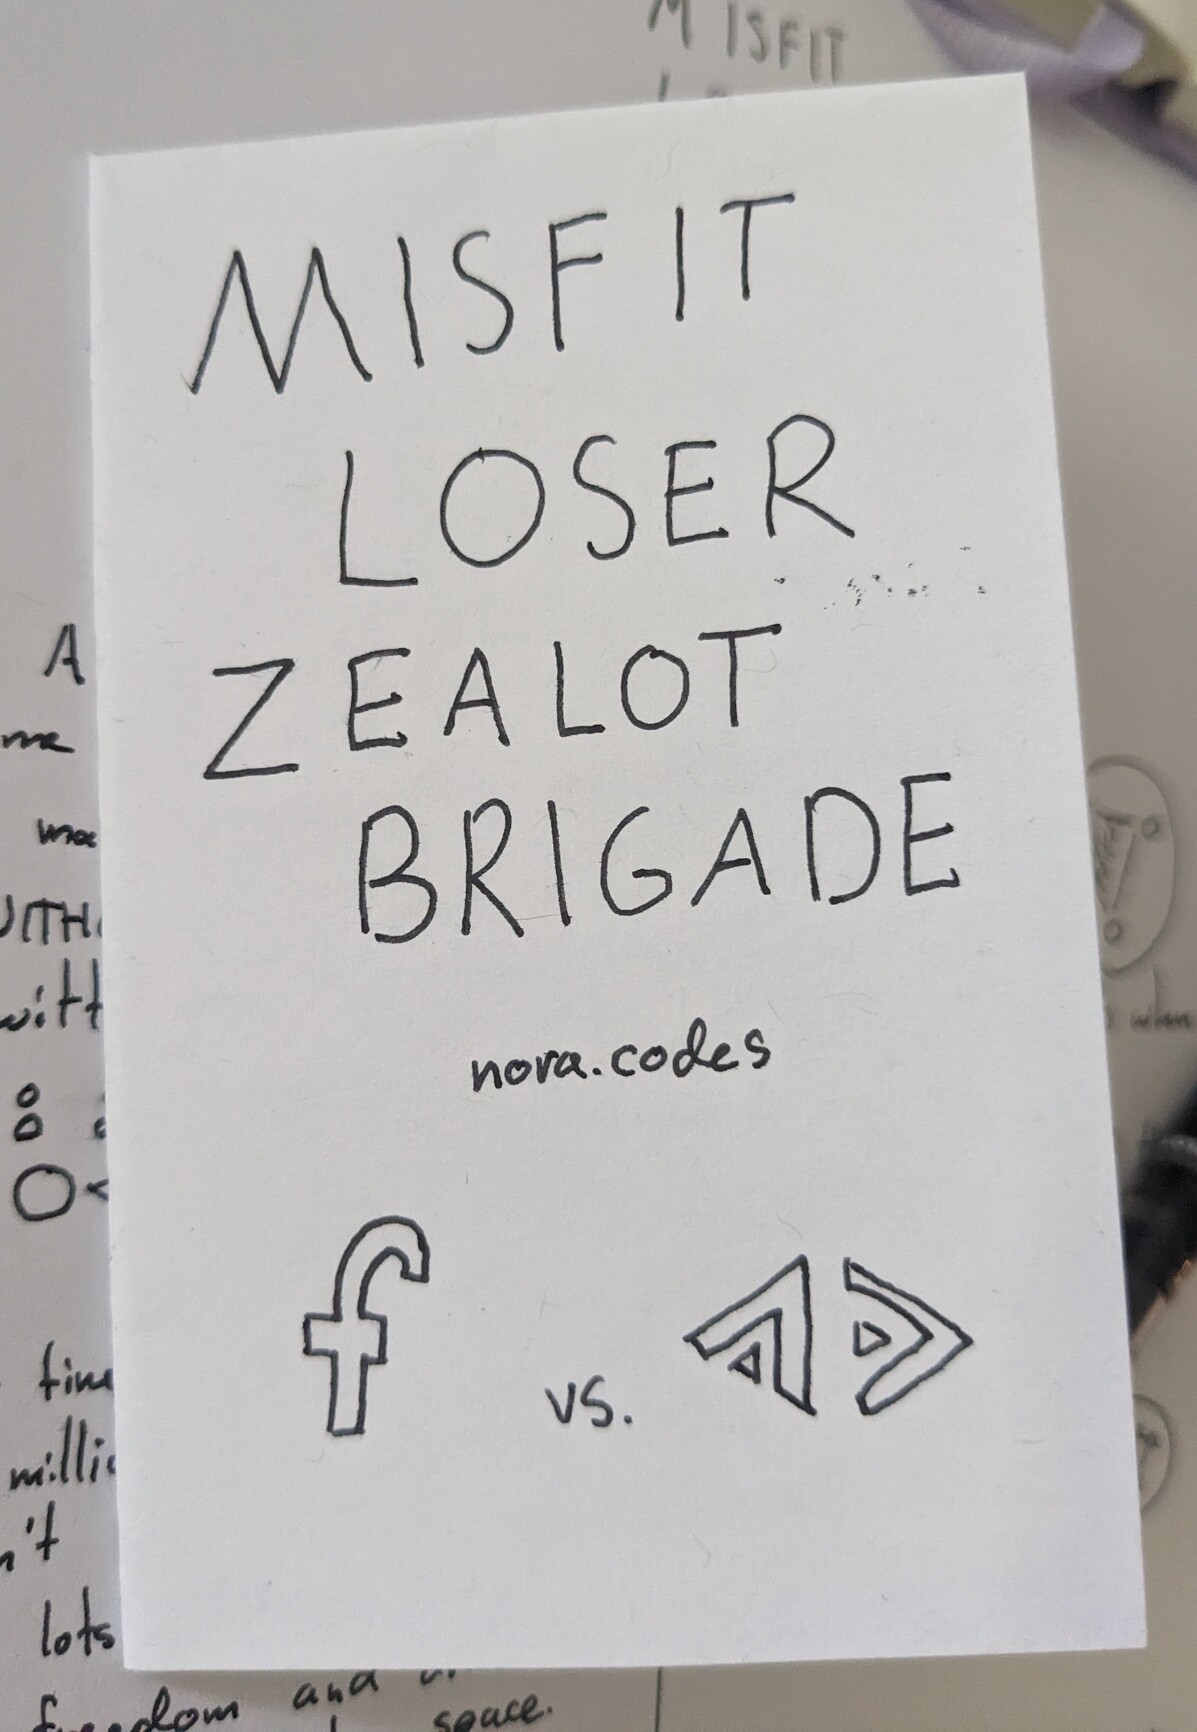 MISFIT
MISFIT
LOSER
ZEALOT
BRIGADE
nora.codes
f vs.
A
me
with
time
n't
lots
freedom and
space.
when